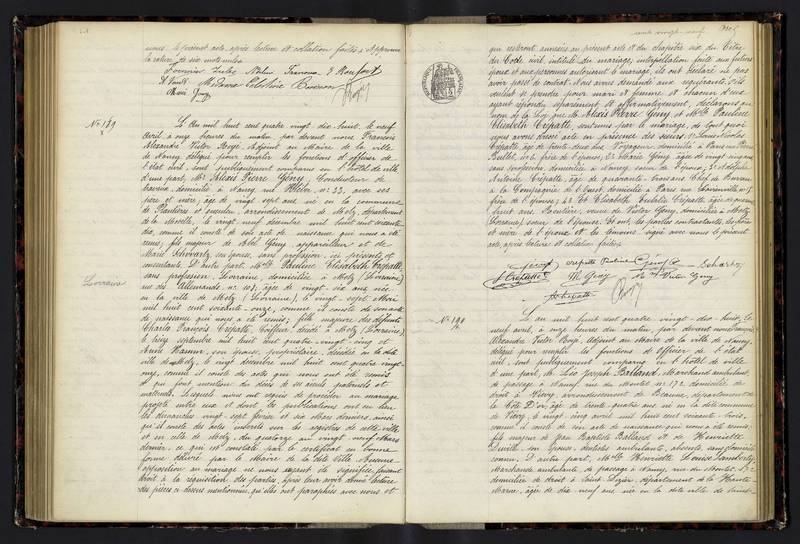 nous, le présent acte, après lecture et collation faites. Approuvé
la rature de six mots nuls
N° 189
L'an mil huit cent quatre vingt dix huit, le neuf
avril, à onze heures du matin, par devant nous François
Alexandre Victor Boyé, Adjoint au Maire de la ville
de Nancy délégué pour remplir les fonctions d'officier de
l'état civil, sont publiquement comparus en l'hôtel de ville
d'une part, Mr Alexis Pierre Gény, Conducteur de
travaux, domicilié à Nancy, rue Kléber, n° 33, avec ses
père et mère, âgé de vingt sept ans né en la commune
de Plantières et Queuleu, arrondissement de Metz, département
de la Moselle, le vingt neuf décembre mil huit cent soixante
dix, comme il conste de son acte de naissance qui nous a été
remis; fils majeur de Abel Gény, appareilleur et de
Marie Schwartz, son épouse, sans profession, ici présents et
consentants. D'autre part, Melle Pauline Elisabeth Crépatte,
sans profession, Lorraine, domiciliée à Metz (Lorraine)
rue des Allemands n° 103, âgée de vingt six ans née
en la ville de Metz (Lorraine), le vingt sept Mai
Lorraine
mil huit cent soixante onze, comme il conste de son acte
de naissance qui nous a été remis; fille majeure des défunts
Charles François Crépatte, Coiffeur, décédé à Metz (Lorraine),
le treize septembre mil huit cent quatre-vingt-cinq et
son épouse, propriétaire, décédée en la dite
ville de Metz, le vingt décembre mil huit cent quatre vingt
onze, comme il conste des actes qui nous ont été remis
et qui font mention du décès de ses aïeuls paternels et
maternels. Lesquels nous ont requis de procéder au mariage
projeté entre eux et dont les publications ont eu lieu
les dimanches vingt sept février et six Mars derniers, ainsi
qu'il conste des actes inscrits sur les registres de cette ville
et en celle de Metz, du quatorze au vingt neuf Mars
dernier, ce qui est constaté par le certificat en bonne
forme délivré par le Maire de la dite ville. Aucune
opposition au mariage ne nous ayant été signifiée, faisant
droit à la réquisition des parties, après leur avoir donné lecture
des pièces ci dessus mentionnées, qu'elles ont paraphées avec nous et
qui resteront annexées au présent acte et du chapitre six du titre
du Code civil, intitulé du mariage, interpellation faite aux futurs
époux et aux personnes autorisant le mariage, ils ont déclaré ne pas
avoir passé de contrat. Nous avons demandé aux requérants s'ils
veulent se prendre pour mari et femme, et chacun d'eux
ayant répondu séparément et affirmativement, déclarons au
nom de la loi que Mr Alexis Pierre Gény, et Melle Pauline
Elisabeth Crépatte, sont unis par le mariage, de tout quoi
nous avons dressé acte en présence des sieurs 1° Louis Nicolas
Crépatte âgé de trente deux ans Voyageur domicilié à Paris rue
Bullet, n° 6, frère de l'épouse; 2° Marie Gény, âgée de vingt cinq ans
sans profession, domiciliée à Nancy, sœur de l'époux; 3°
Crépatte, âgé de quarante-trois ans Chef de Bureau
à la Compagnie de l'Ouest, domicilié à Paris
frère de l'épouse; 4° et Elisabeth Eulalie Crépatte âgée de
huit ans, Rentière, veuve de Victor Gény, domiciliée à Metz
(Lorraine) sœur de l'épouse. Et ont, les parties contractantes, les père
et mère de l'époux et les témoins signé avec nous le présent
acte, après lecture et collation faites.
Gény Crépatte Pauline Gény Schartz
Crépatte M Gény Ve Victor Gény
Crépatte
N° 190
L'an mil huit cent quatre vingt-dix-huit, le
neuf avril, à onze heures du matin, par devant nous François
Alexandre Victor Boyé, Adjoint au Maire de la ville de Nancy
délégué pour remplir les fonctions d'officier de l'état
civil, sont publiquement comparus en l'hôtel de ville
d'une part, Mr Léo Joseph Balland, Marchand ambulant,
de passage à Nancy, rue du Montet, n° 172 domicilié de
droit à Viévy, arrondissement de Beaune, département de
la Côte D'or, âgé de trente quatre ans né en la dite commune
de Viévy, le vingt cinq avril mil huit cent soixante-trois,
comme il conste de son acte de naissance qui nous a été remis;
fils majeur de Jean Baptiste Balland et de Henriette
son épouse, artistes ambulants, absents, sans domicile
connu. D'autre part, Melle Henriette Louise
Marchande ambulante de passage à Nancy, rue du Montet, 172
domiciliée de droit à Saint Dizier, département de la Haute
Marne, âgée de dix-neuf ans, née en la dite ville de Saint